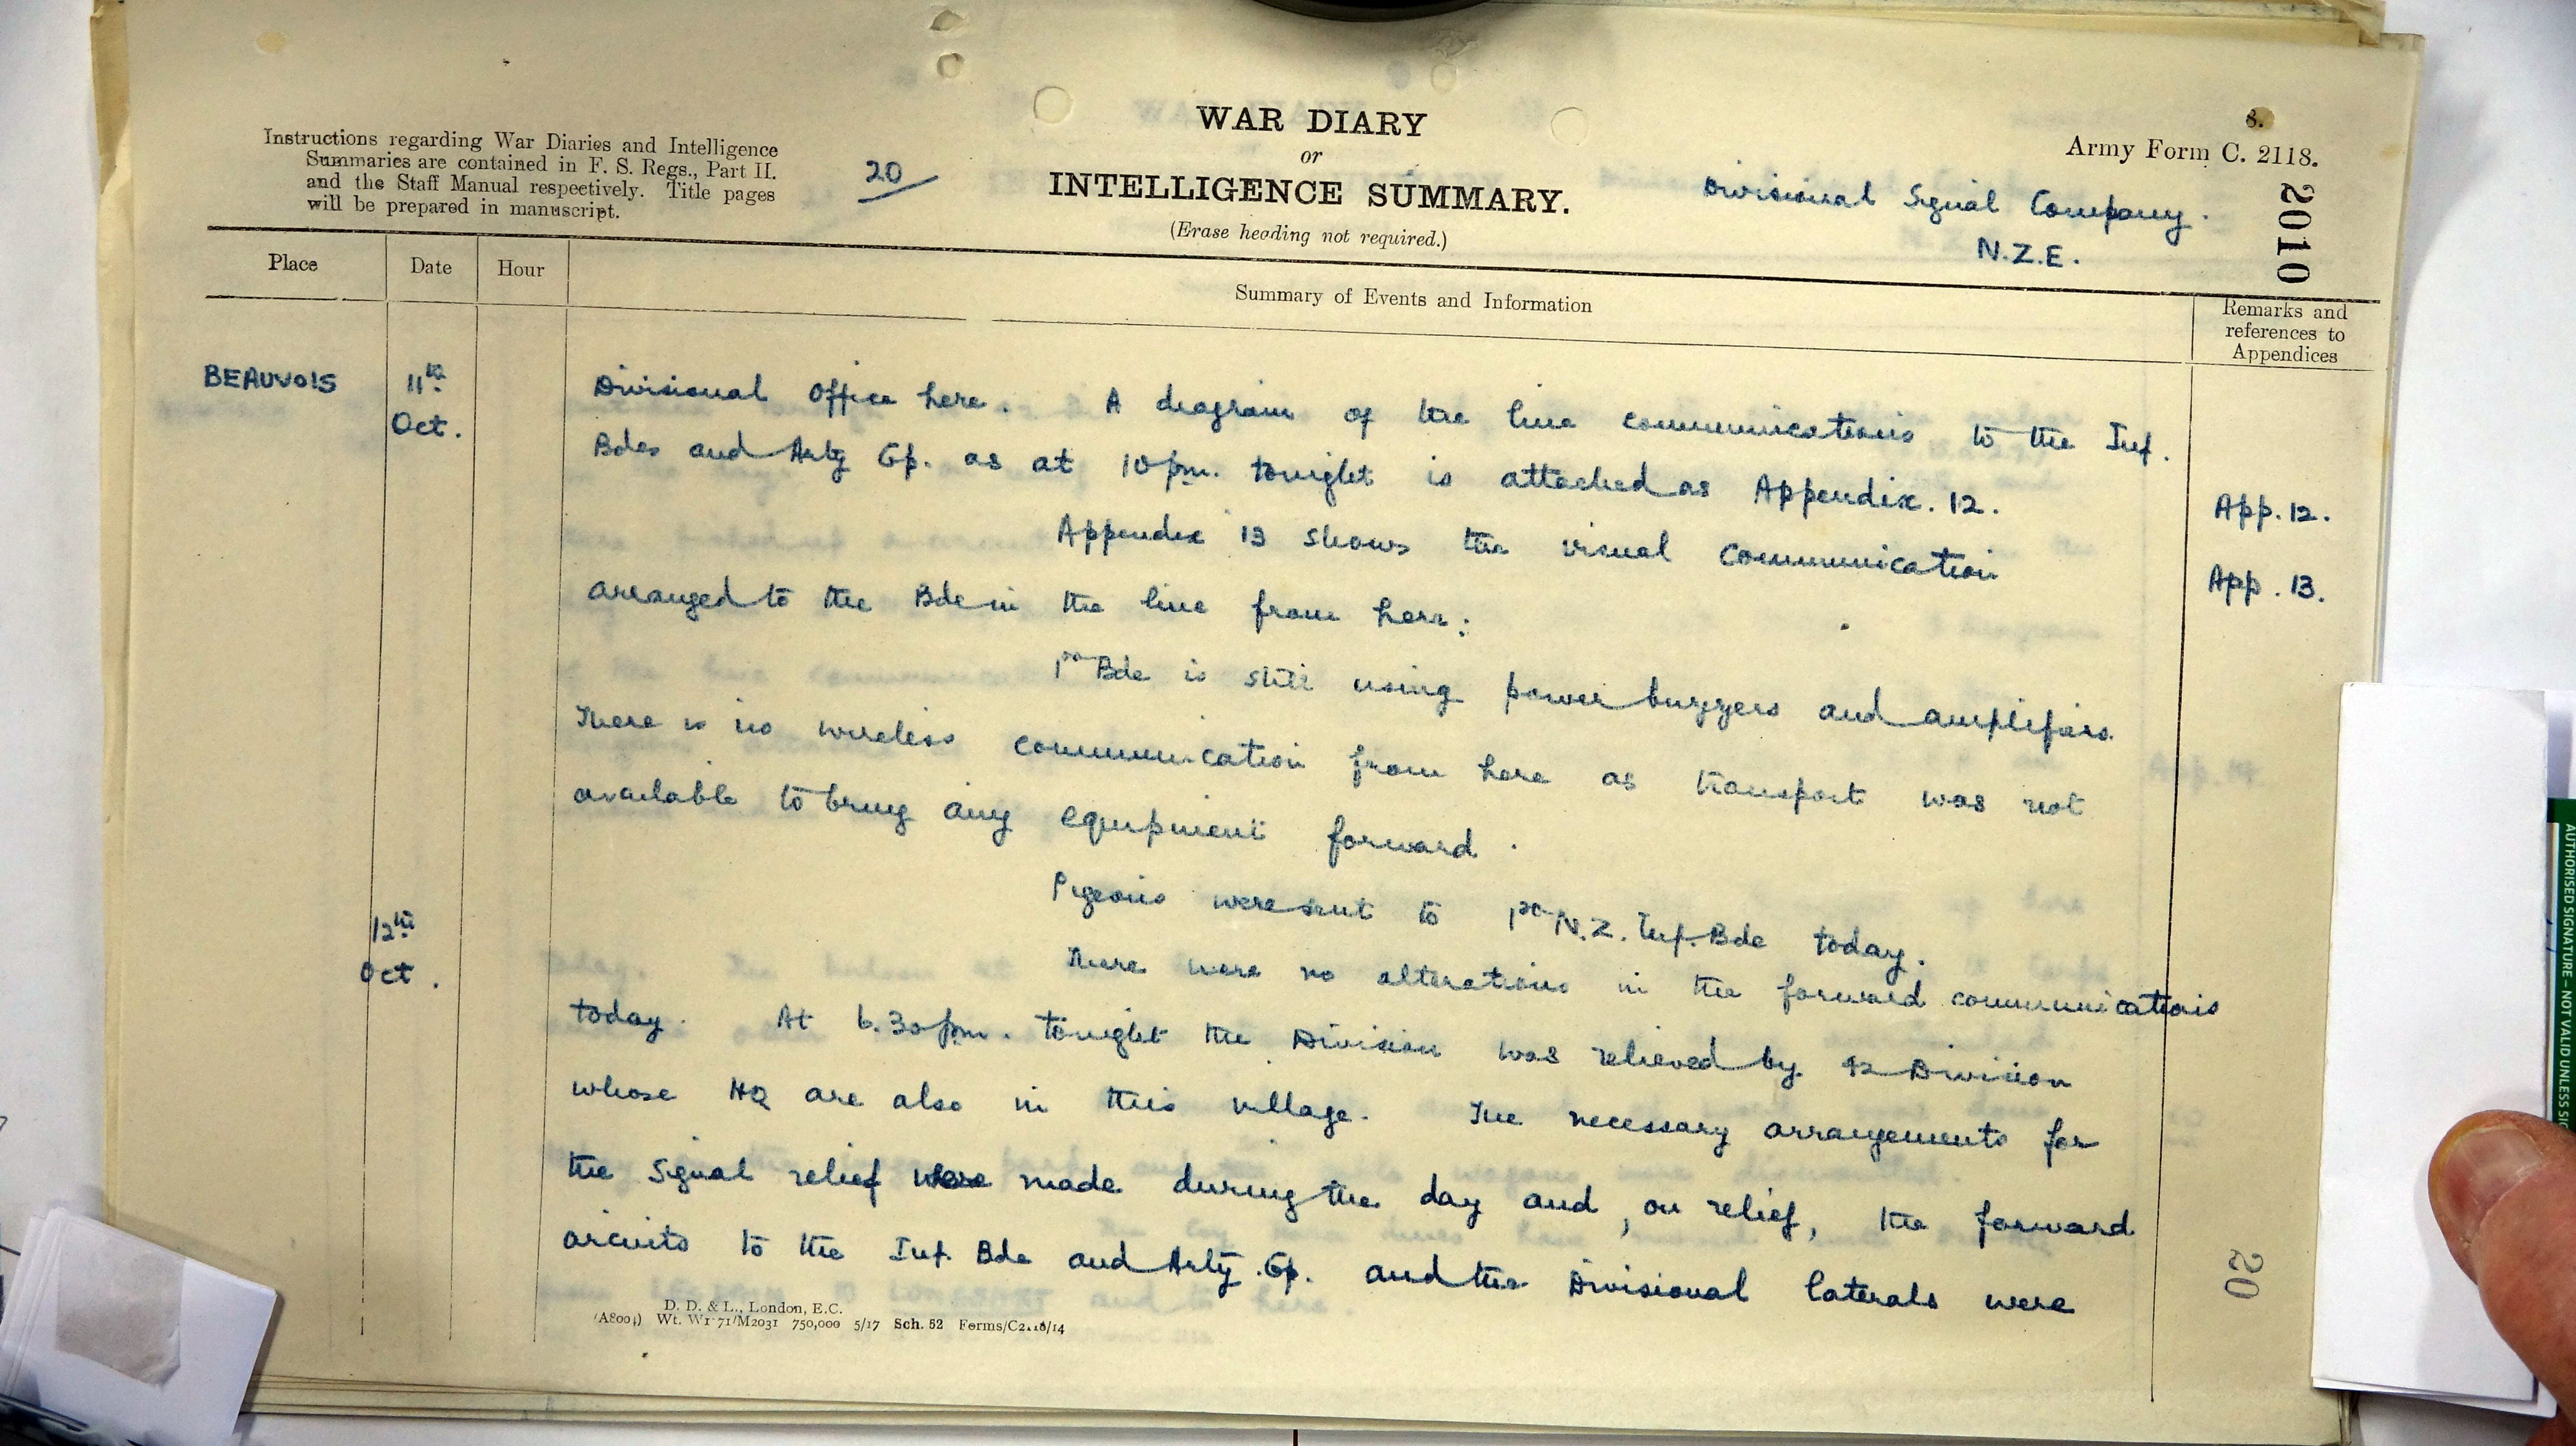 8.
Army Form C. 2118.
WAR DIARY
or
INTELLIGENCE SUMMARY.
(Erase heading not required.)
Instructions regarding War Diaries and Intelligence
Summaries are contained in F. S. Regs., Part II.
and the Staff Manual respectively. Title pages
will be prepared in manuscript.
20
Divisional Signal Company.
N.Z.E.
2010
Place
Date
Hour
Summary of Events and Information
Remarks and
references to
Appendices
BEAUVOIS
11th
Oct.
Divisional Office here. A diagram of the line communications to the Inf.
Bdes and Arty Gp. as at 10 pm. tonight is attached as Appendix. 12.
App. 12.
Appendix 13 shows the visual communication
App. 13.
arranged to the Bde in the line from here:
1st Bde is still using power buzzers and amplifiers.
There is no wireless communication from here as transport was not
available to bring any equipment forward.
Pigeons were sent to 1st N.Z. Inf. Bde today.
12th
Oct.
There were no alterations in the forward communications
today. At 6.30 pm. tonight the Division was relieved by 42 Division
whose HQ are also in this village. The necessary arrangements for
the Signal relief were made during the day and, on relief, the forward
circuits to the Inf. Bde and Arty. Gp. and the Divisional laterals were
D. D. & L., London, E.C.
Wt. W1 71/M2031 750,000 5/17 Sch. 52 Forms/C2118/14
20
AUTHORISED SIGNATURE – NOT VALID UNLESS